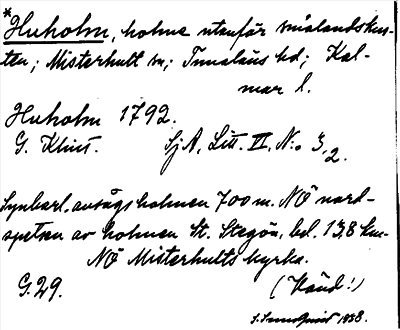 *Huholm, holme utanför smålandskus-
ten; Misterhult sn; Tunaläns hd; Kal-
mar l.
Huholm 1792.
G. Klint. SjA, Litt. II, N:o 3,2.
Synbarl. avsågs holmen 700 m. NÖ nord-
spetsen av holmen St. Stegön, bel. 13,8 km.
NÖ Misterhults kyrka.
G.29. (Känd!)
1938.